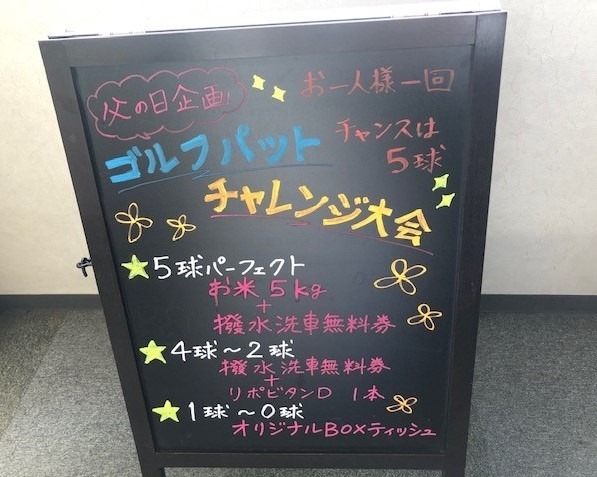 父の日企画!
お一人様一回
ゴルフパット
チャンスは
5球
チャレンジ大会
5球パーフェクト
お米5kg
+
撥水洗車無料券
4球~2球
撥水洗車無料券
+
リポビタンD 1本
1球~0球
オリジナルBOXティッシュ